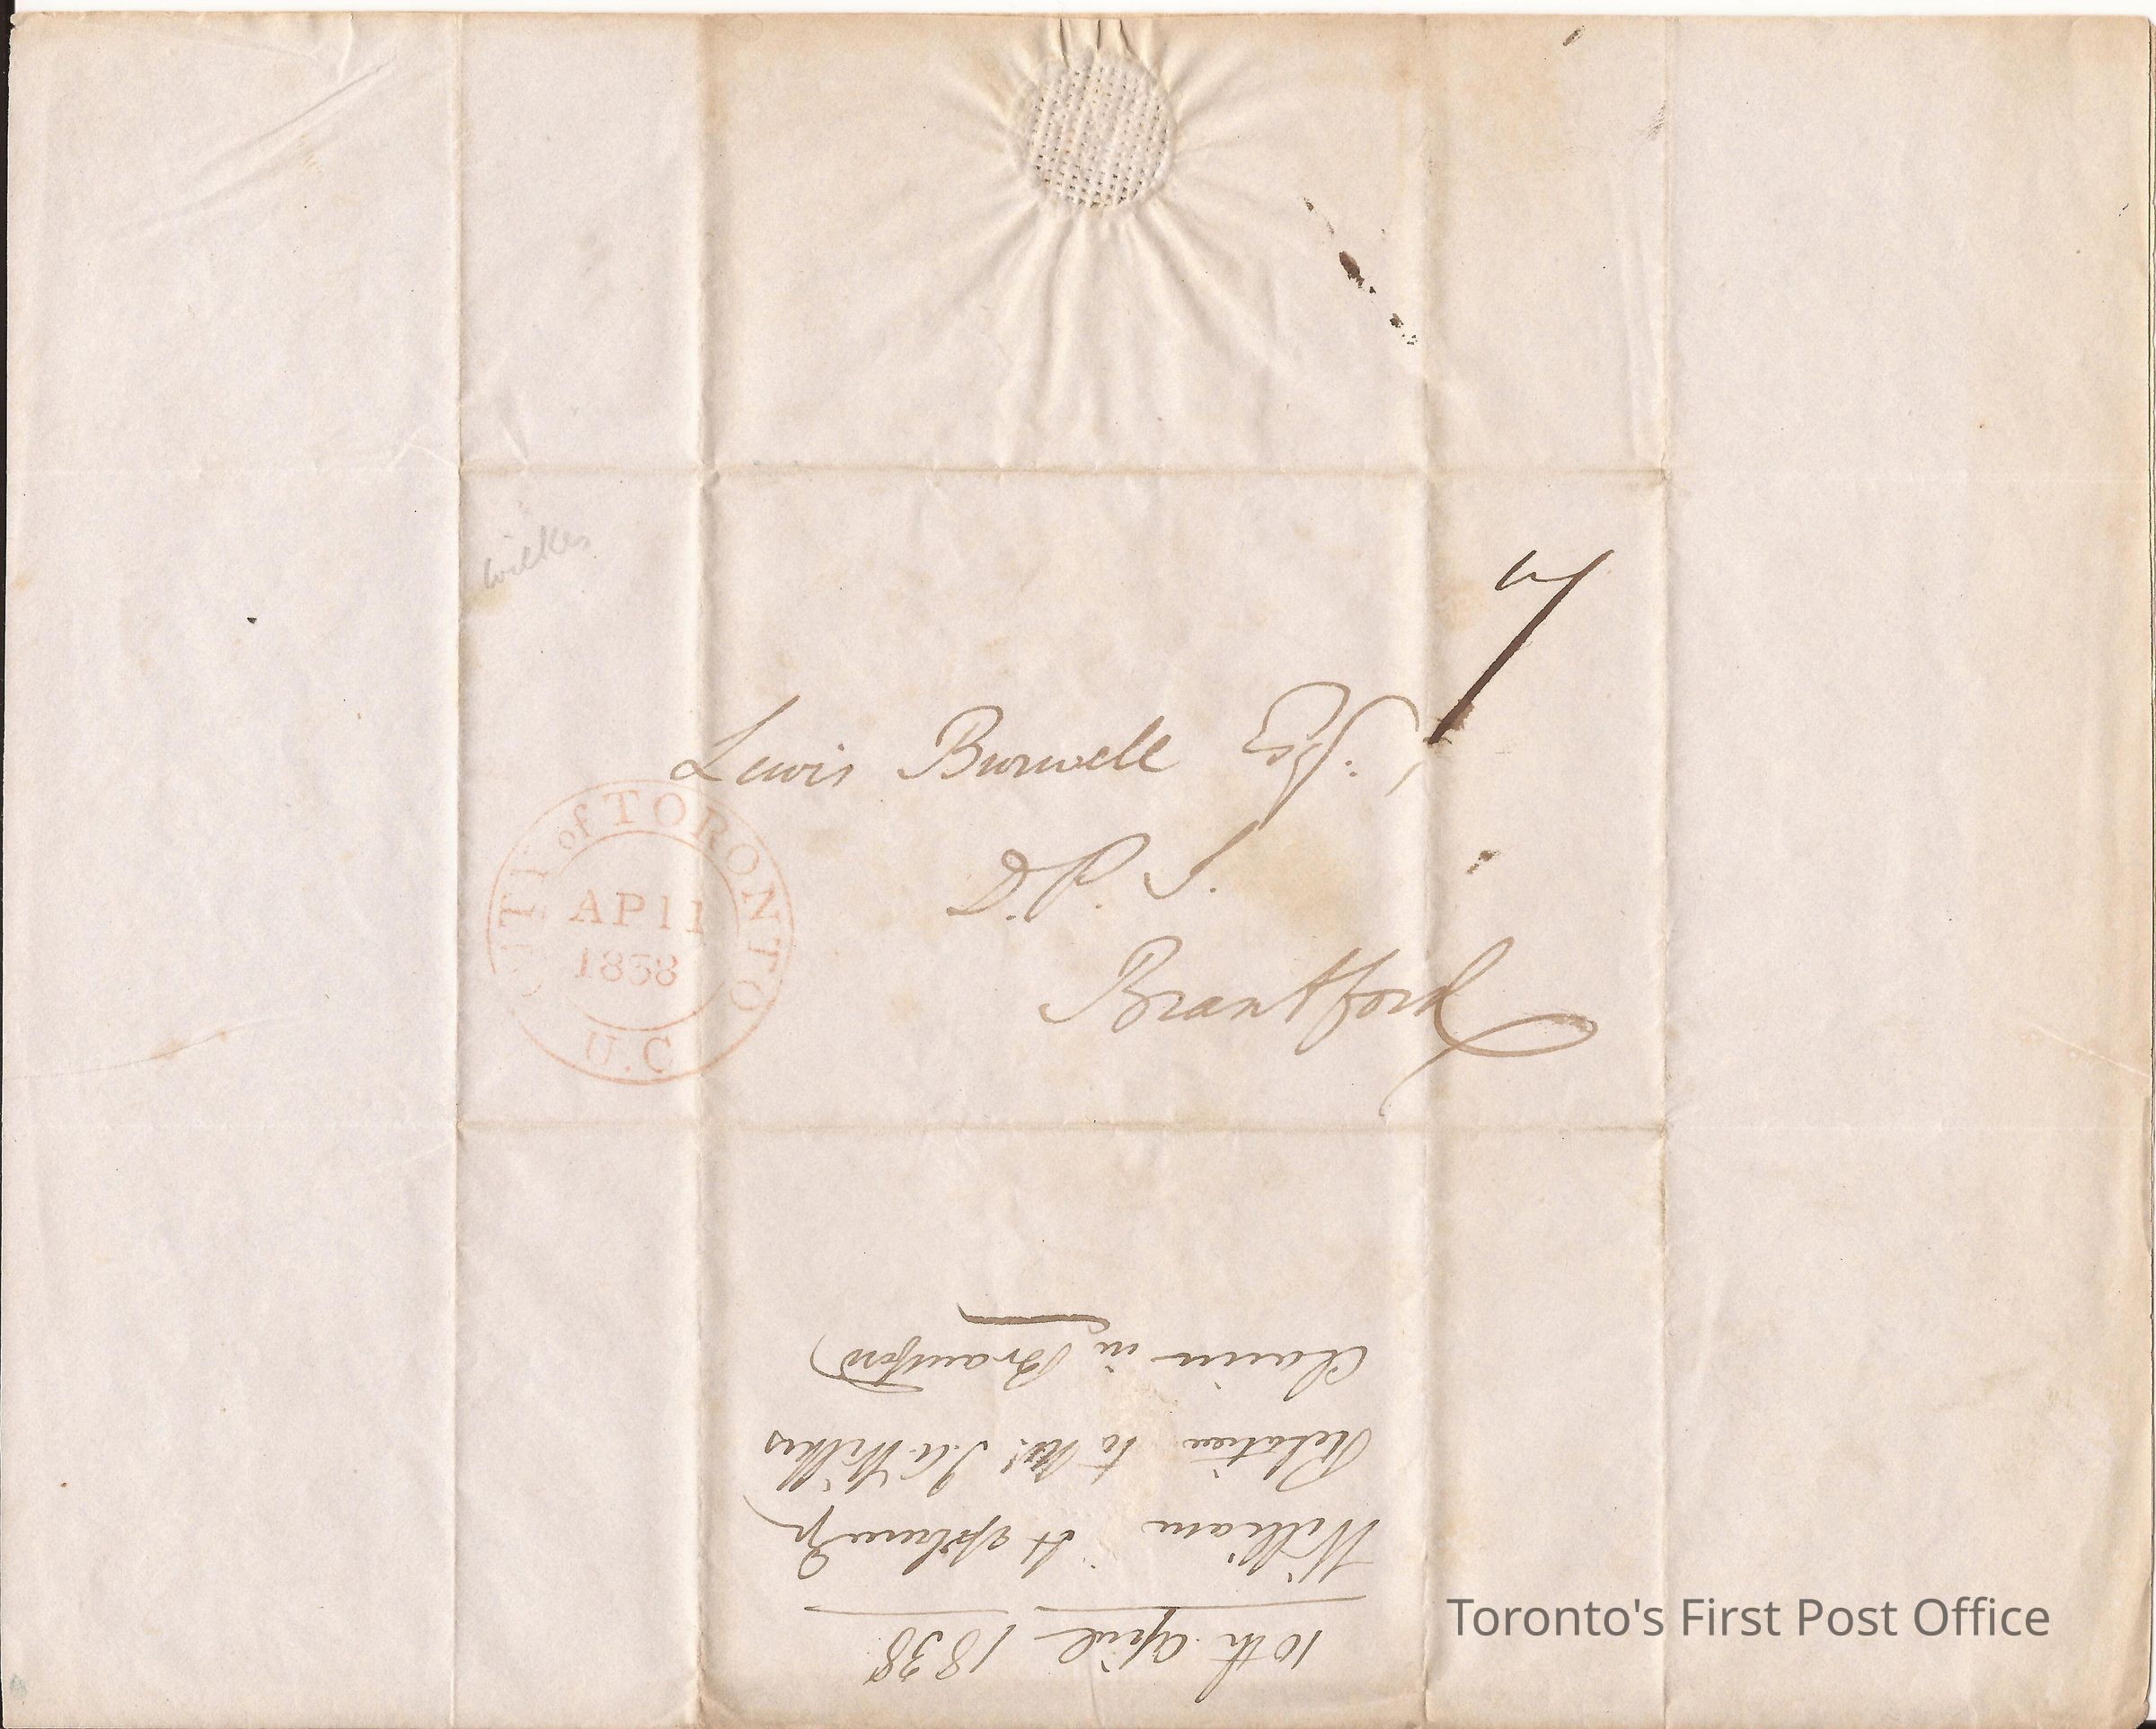 wilkes
7
Lewis Burwell Esqr.
D.P.S.
Brantford
CITY of TORONTO
AP 11
1838
U.C
10th April 1838
William Hepburn
Relation to Mr. J. A Wilkes
Claim in Brantford
Toronto's First Post Office